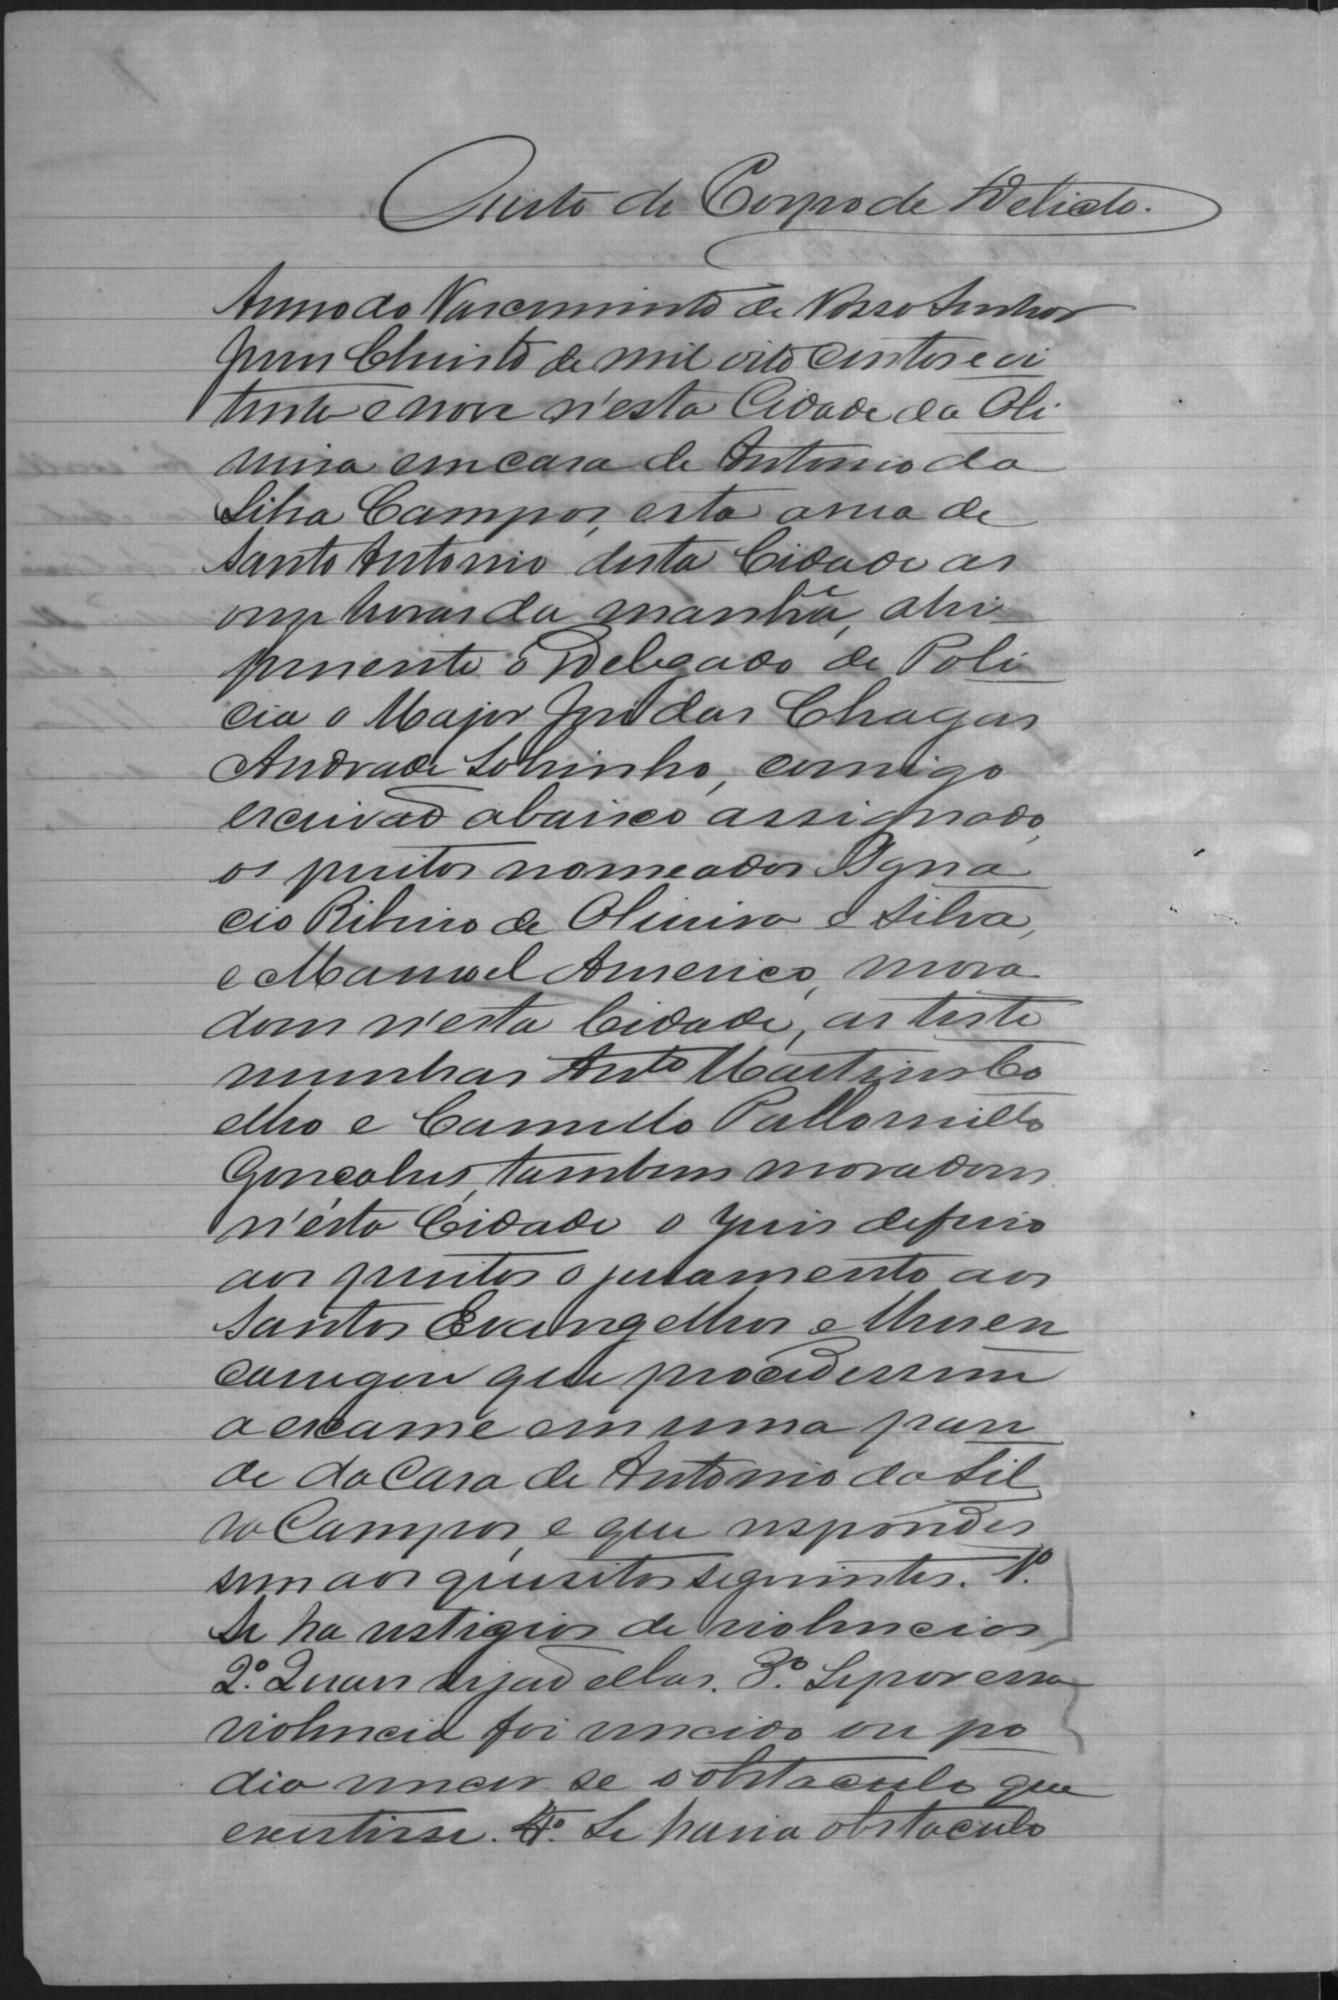 Auto de Corpo de Delicto.
Anno do Nascimento de Nosso Senhor
Jesus Christo de mil oito centos e oi
tenta e nove n'esta Cidade da Oli
veira em casa de Antonio da
Silva Campos, esta a rua de
Santo Antonio desta Cidade as
onze horas da manhã, ahi
presente o Delegado de Poli
cia o Major José das Chagas
Andrade Sobrinho, comigo
escrivaõ abaixo assignado,
os peritos nomeados Igna
cio Ribeiro de Oliveira e Silva,
e Manoel Americo, mora
dores n'esta Cidade, as teste
munhas Antº Martins Co
elho e Camillo
Gonçalves, tambem moradores
n'esta Cidade o juis deferio
aos peritos o juramento aos
Santos Evangelhos e lhes en
carregou que procedessem
a exame em uma pare
de da Casa de Antonio da Sil
va Campos, e que respondes
sem aos quesitos seguintes. 1º.
Se ha vestigios de violencias,
2º. Quaes sejaõ ellas. 3º. Se por essa
violencia foi vencido ou po
dia vencer se o obstaculo que
existisse. 4º. Se havia obstaculo